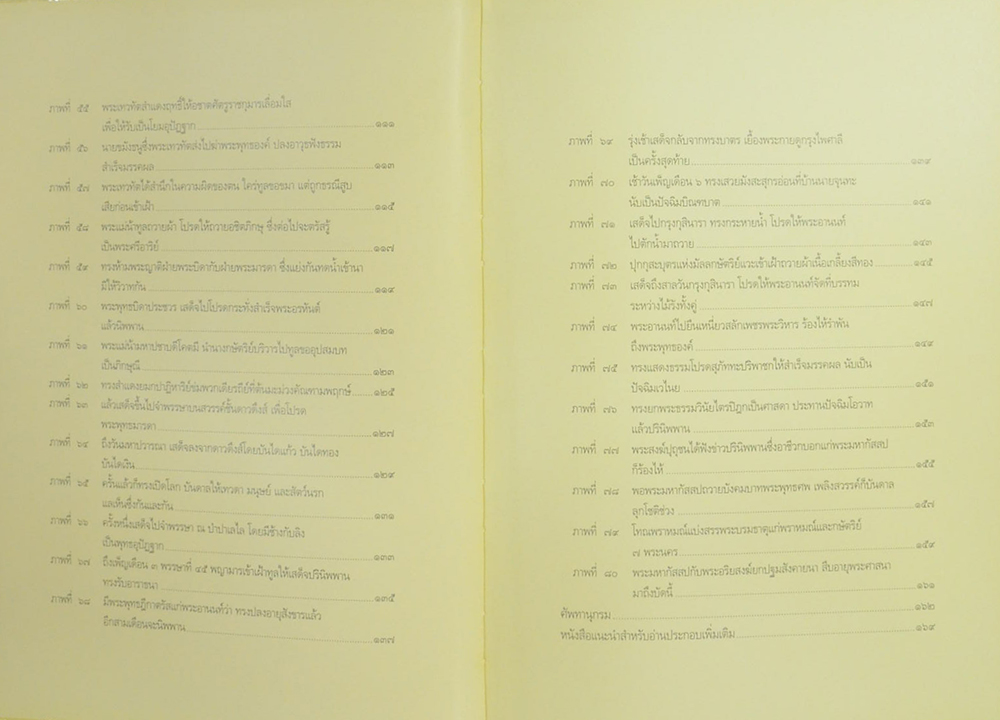 ภาพที่ ๕๕ พระเทวทัตสำแดงฤทธิ์ให้อชาตศัตรูราชกุมารเลื่อมใส
เพื่อให้รับเป็นโยมอุปัฏฐาก ๑๑๑
ภาพที่ ๕๖ นายขมังธนูซึ่งพระเทวทัตส่งไปฆ่าพระพุทธองค์ ปลงอาวุธฟังธรรม
สำเร็จมรรคผล ๑๑๓
ภาพที่ ๕๗ พระเทวทัตได้สำนึกในความผิดของตน ใคร่ทูลขอขมา แต่ถูกธรณีสูบ
เสียก่อนเข้าเฝ้า ๑๑๕
ภาพที่ ๕๘ พระแม่น้าทูลถวายผ้า โปรดให้ถวายอชิตภิกษุ ซึ่งต่อไปจะตรัสรู้
เป็นพระศรีอาริย์ ๑๑๗
ภาพที่ ๕๙ ทรงห้ามพระญาติฝ่ายพระบิดากับฝ่ายพระมารดา ซึ่งแย่งกันทดน้ำเข้านา
มิให้วิวาทกัน ๑๑๙
ภาพที่ ๖๐ พระพุทธบิดาประชวร เสด็จไปโปรดกระทั่งสำเร็จพระอรหันต์
แล้วนิพพาน ๑๒๑
ภาพที่ ๖๑ พระแม่น้ามหาปชาบดีโคตมี นำนางกษัตริย์บริวารไปทูลขออุปสมบท
เป็นภิกษุณี ๑๒๓
ภาพที่ ๖๒ ทรงสำแดงยมกปาฏิหาริย์ข่มพวกเดียรถีย์ที่ต้นมะม่วงคัณฑามพฤกษ์ ๑๒๕
ภาพที่ ๖๓ แล้วเสด็จขึ้นไปจำพรรษาบนสวรรค์ชั้นดาวดึงส์ เพื่อโปรด
พระพุทธมารดา ๑๒๗
ภาพที่ ๖๔ ถึงวันมหาปวารณา เสด็จลงจากดาวดึงส์โดยบันไดแก้ว บันไดทอง
บันไดเงิน ๑๒๙
ภาพที่ ๖๕ ครั้นแล้วก็ทรงเปิดโลก บันดาลให้เทวดา มนุษย์ และสัตว์นรก
แลเห็นซึ่งกันและกัน ๑๓๑
ภาพที่ ๖๖ ครั้งหนึ่งเสด็จไปจำพรรษา ณ ป่าปาเลไล โดยมีช้างกับลิง
เป็นพุทธอุปัฏฐาก ๑๓๓
ภาพที่ ๖๗ ถึงเพ็ญเดือน ๓ พรรษาที่ ๔๕ พญามารเข้าเฝ้าทูลให้เสด็จปรินิพพาน
ทรงรับอาราธนา ๑๓๕
ภาพที่ ๖๘ มีพระพุทธฎีกาตรัสแก่พระอานนท์ว่า ทรงปลงอายุสังขารแล้ว
อีกสามเดือนจะนิพพาน ๑๓๗
ภาพที่ ๖๙ รุ่งเช้าเสด็จกลับจากทรงบาตร เยื้องพระกายดูกรุงไพศาลี
เป็นครั้งสุดท้าย ๑๓๙
ภาพที่ ๗๐ เช้าวันเพ็ญเดือน ๖ ทรงเสวยมังสะสุกรอ่อนที่บ้านนายจุนทะ
นับเป็นปัจฉิมบิณฑบาต ๑๔๑
ภาพที่ ๗๑ เสด็จไปกรุงกุสินารา ทรงกระหายน้ำ โปรดให้พระอานนท์
ไปตักน้ำมาถวาย ๑๔๓
ภาพที่ ๗๒ ปุกกุสะบุตรแห่งมัลลกษัตริย์แวะเข้าเฝ้าถวายผ้าเนื้อเกลี้ยงสีทอง ๑๔๕
ภาพที่ ๗๓ เสด็จถึงสาลวันกรุงกุสินารา โปรดให้พระอานนท์จัดที่บรรทม
ระหว่างไม้รังทั้งคู่ ๑๔๗
ภาพที่ ๗๔ พระอานนท์ไปยืนเหนี่ยวสลักเพชรพระวิหาร ร้องไห้รำพัน
ถึงพระพุทธองค์ ๑๔๙
ภาพที่ ๗๕ ทรงแสดงธรรมโปรดสุภัททะปริพาชกให้สำเร็จมรรคผล นับเป็น
ปัจฉิมเวไนย ๑๕๑
ภาพที่ ๗๖ ทรงยกพระธรรมวินัยไตรปิฎกเป็นศาสดา ประทานปัจฉิมโอวาท
แล้วปรินิพพาน ๑๕๓
ภาพที่ ๗๗ พระสงฆ์ปุถุชนได้ฟังข่าวปรินิพพานซึ่งอาชีวกบอกแก่พระมหากัสสป
ก็ร้องไห้ ๑๕๕
ภาพที่ ๗๘ พอพระมหากัสสปถวายบังคมบาทพระพุทธศพ เพลิงสวรรค์ก็บันดาล
ลุกโชติช่วง ๑๕๗
ภาพที่ ๗๙ โทณพราหมณ์แบ่งสรรพระบรมธาตุแก่พราหมณ์และกษัตริย์
๗ พระนคร ๑๕๙
ภาพที่ ๘๐ พระมหากัสสปกับพระอริยสงฆ์ยกปฐมสังคายนา สืบอายุพระศาสนา
มาถึงบัดนี้ ๑๖๑
ศัพทานุกรม ๑๖๒
หนังสือแนะนำสำหรับอ่านประกอบเพิ่มเติม ๑๖๙